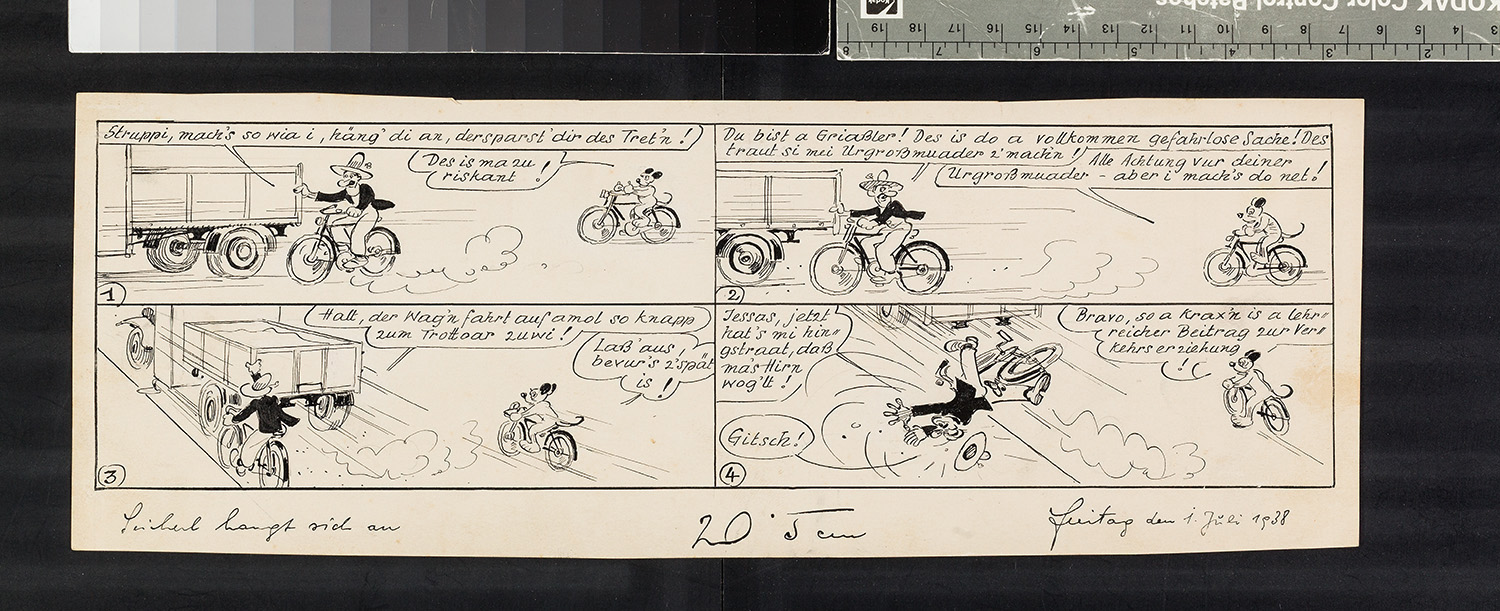 KODAK Color Control Patches
19 18 17 16 15 14 13 12 11 10 9 8 7 6 5 4 3
8 7 6 5 4 3 2
Struppi, mach's so wia i, häng' di an, dersparst dir des Tret'n!
Des is ma zu
riskant!
1
Du bist a Griaßler! Des is do a vollkommen gefahrlose Sache! Des
traut si mei Urgroßmuader z'mach'n!
Alle Achtung vur deiner
Urgroßmuader - aber i mach's do net!
2
Halt, der Wag'n fahrt auf amol so knapp
zum Trottoar zuwi!
Laß' aus,
bevur's z'spät
is!
3
Jessas, jetzt
hat's mi hin=
gstraat, daß
ma's Hirn
wog'lt!
Gitsch!
Bravo, so a Krax'n is a lehr=
reicher Beitrag zur Ver=
kehrserziehung
!
4
Seicherl hängt sich an
20˙5 cm
Freitag den 1. Juli 1938